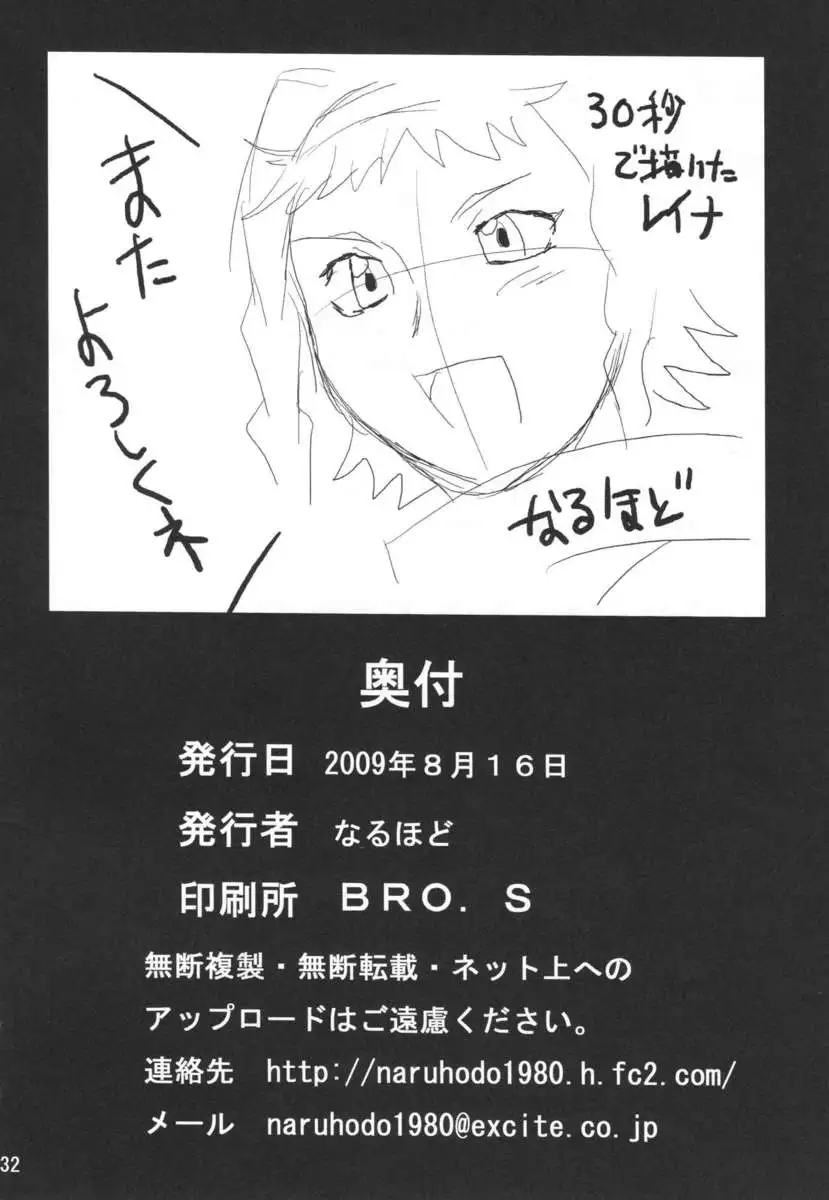 30秒
で描けた
レイナ
また
よろしくネ
なるほど
奥付
発行日 2009年８月１６日
発行者 なるほど
印刷所 ＢＲＯ．Ｓ
無断複製・無断転載・ネット上への
アップロードはご遠慮ください。
連絡先 http://naruhodo1980.h.fc2.com/
メール naruhodo1980@excite.co.jp
32